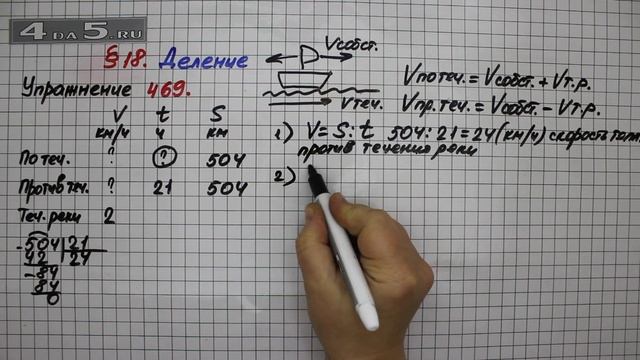 4DA5.RU
§18. Деление
Упражнение 469.
V t S
км/ч ч км
По теч. ? ? 504
Против теч. ? 21 504
Теч. реки 2
- 504 | 21
42 | 24
- 84
84
0
Vсобст.
Vтеч.
Vпо теч. = Vсобст. + Vт.р.
Vпр.теч. = Vсобст. - Vт.р.
1) V = S : t 504 : 21 = 24 (км/ч) скорость
против течения реки
2)